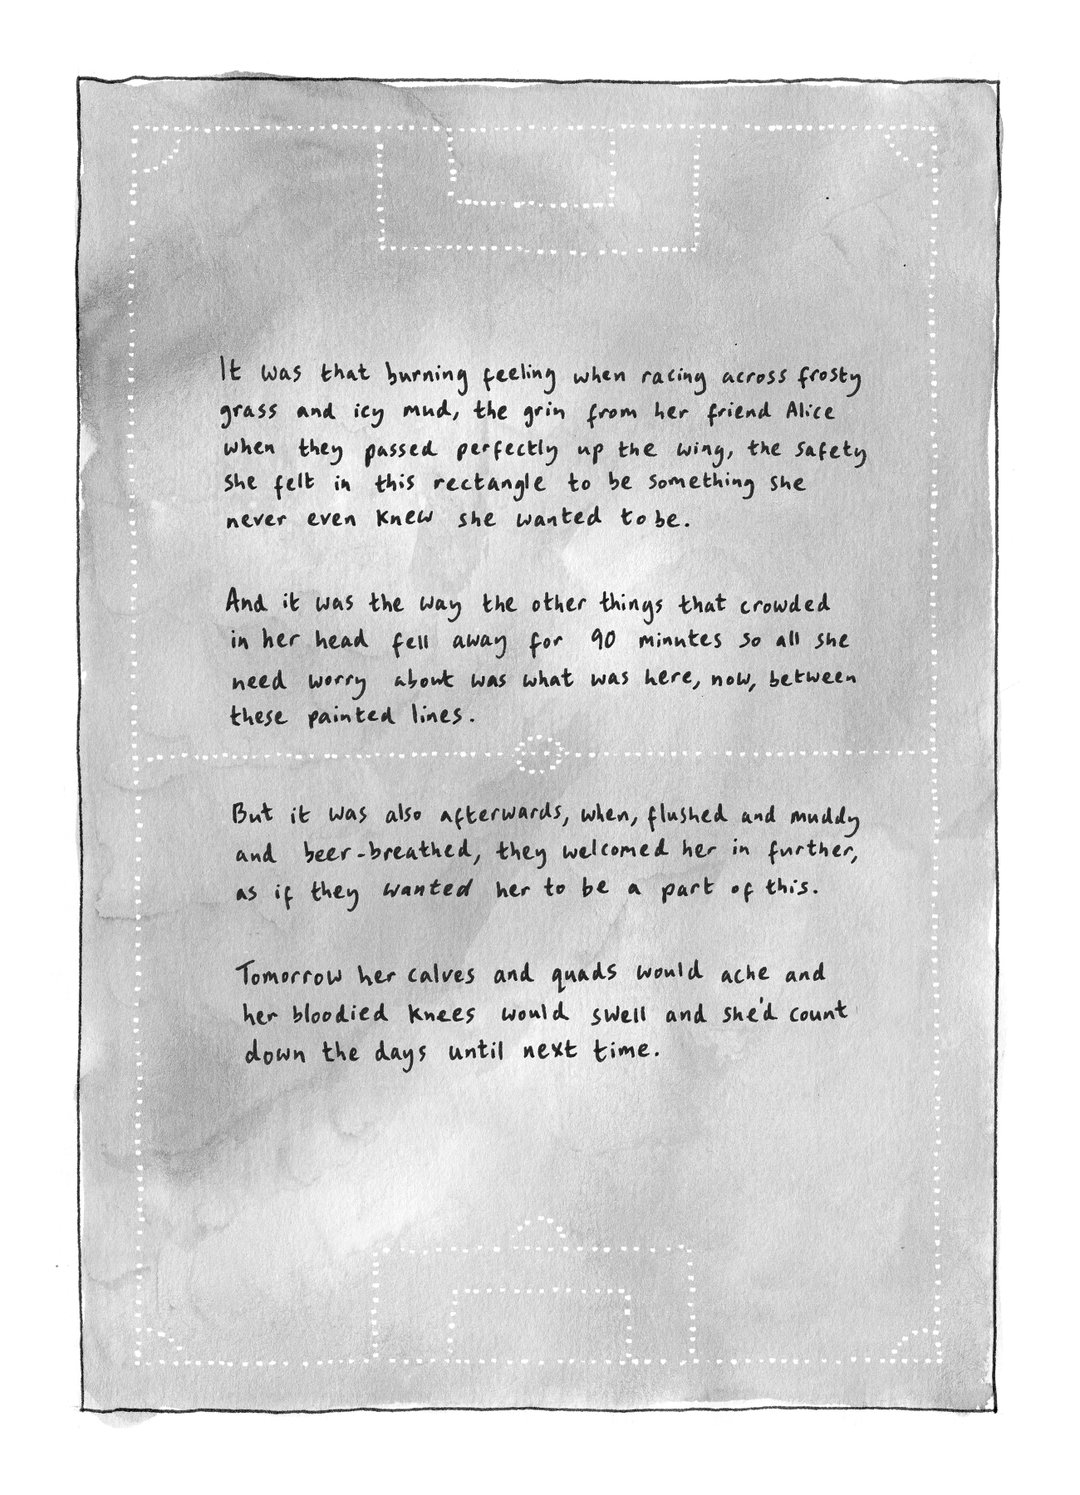 It was that burning feeling when racing across frosty
grass and icy mud, the grin from her friend Alice
when they passed perfectly up the wing, the safety
she felt in this rectangle to be something she
never even knew she wanted to be.
And it was the way the other things that crowded
in her head fell away for 90 minutes so all she
need worry about was what was here, now, between
these painted lines.
But it was also afterwards, when, flushed and muddy
and beer-breathed, they welcomed her in further,
as if they wanted her to be a part of this.
Tomorrow her calves and quads would ache and
her bloodied knees would swell and she'd count
down the days until next time.